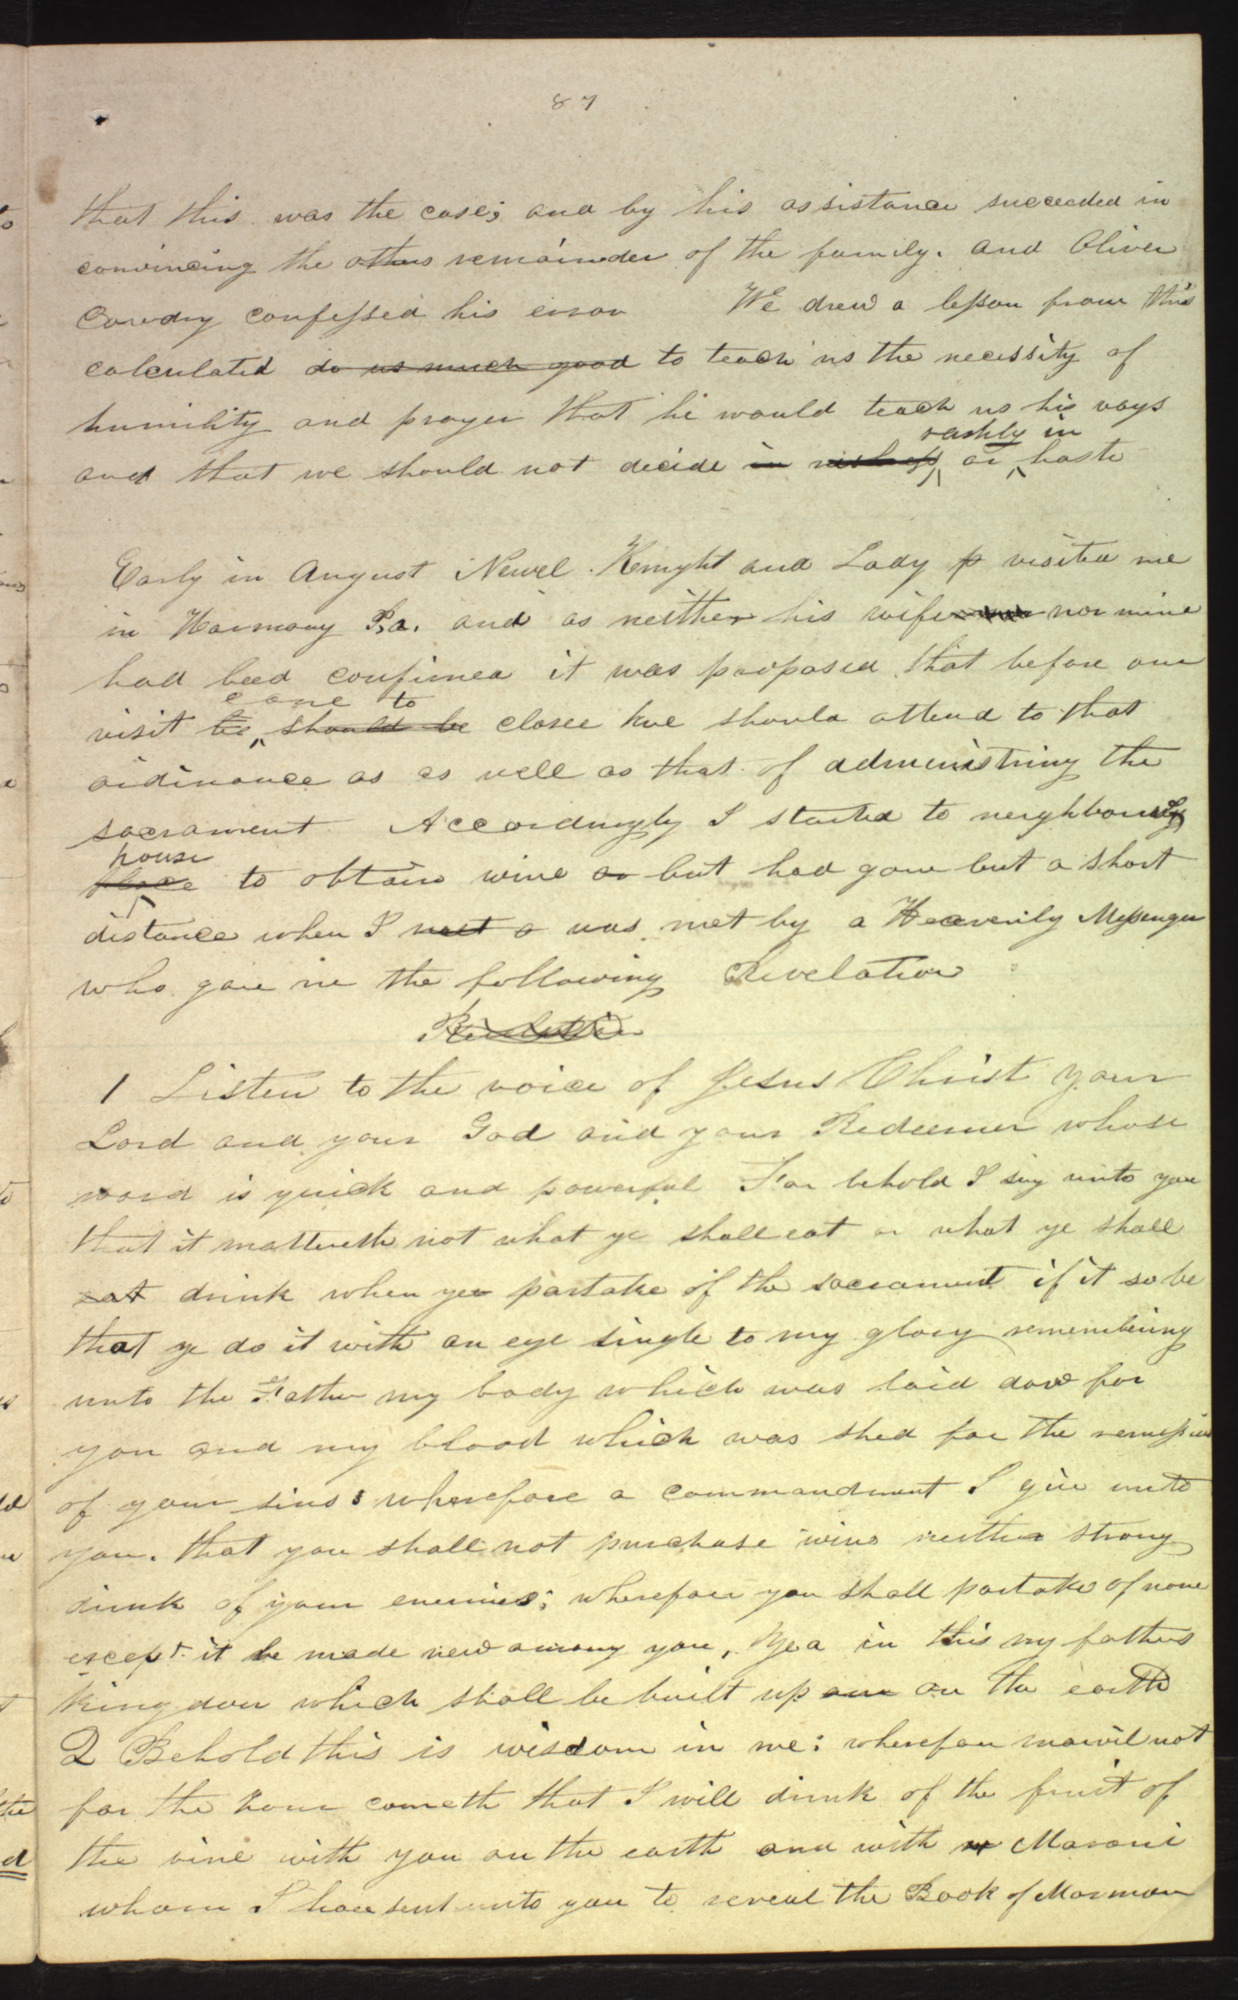 87
that this was the case; and by his assistance succeeded in
convincing the others remainder of the family. and Oliver
Cowdry confessed his error We drew a lesson from this
calculated do us much good to teach us the necessity of
humility and prayer that he would teach us his ways
rashly in
and that we should not decide in or haste
Early in August Newel Knight and Lady p visited me
in Harmony Pa. and as neither his wife nor mine
had beed confirmed it was proposed that before our
came to
visit should be close we should attend to that
ordinance as as well as that of administring the
sacrament Accordingly I started to neighbours
house
place to obtain wine or but had gone but a short
distance when I met a was met by a Heavenly Messenger
who gave me the following Revelation
Revelation
1 Listen to the voice of Jesus Christ your
Lord and your God and your Redeemer whose
word is quick and powerful For behold I say unto you
that it mattereth not what ye shall eat or what ye shall
eat drink when ye partake of the sacrament if it so be
that ye do it with an eye single to my glory remembering
unto the Father my body which was laid dow for
you and my blood which was shed for the remission
of your sins: wherefore a commandment I give unto
you. that you shall not purchase wine neither strong
drink of your enemies; wherefore you shall partake of none
except it be made new among you, Yea in this my fathers
kingdom which shall be built up on the earth
2 Behold this is wisdom in me: wherefore marvil not
for the hour cometh that I will drink of the fruit of
the vine with you on the earth and with Moroni
whom I have sent unto you to reveal the Book of Mormon